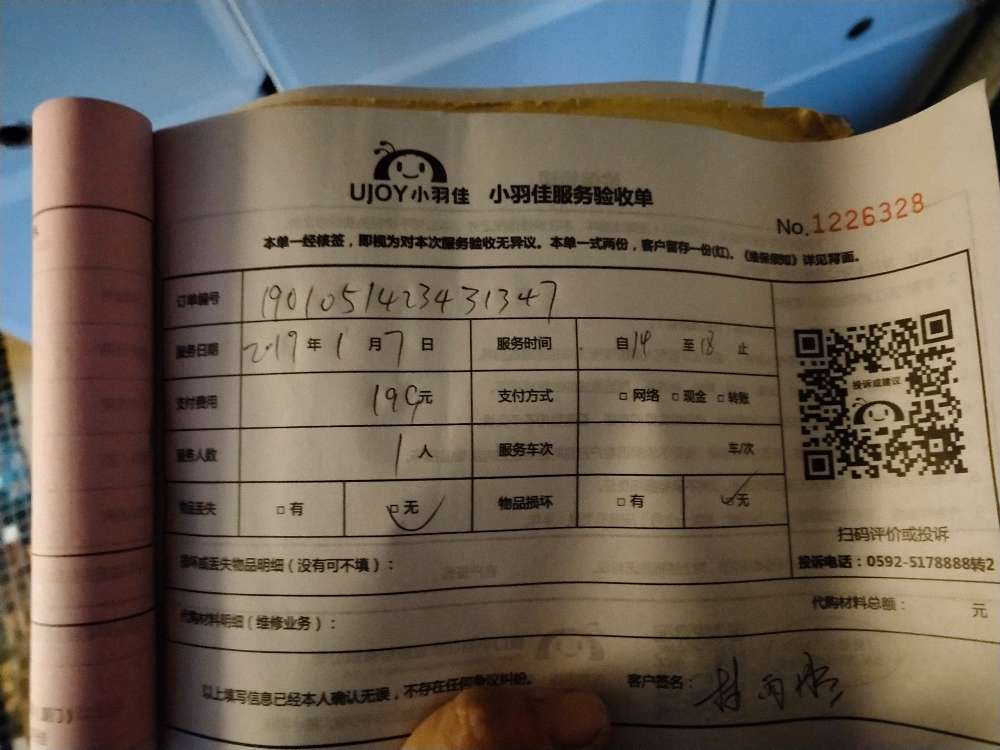 UJOY小羽佳 小羽佳服务验收单
No.1226328
本单一经核签，即视为对本次服务验收无异议。本单一式两份，客户留存一份(红)。《维保须知》详见背面。
订单编号 1901051423431347
服务日期 2019年1月7日 服务时间 自14至18止
支付费用 199元 支付方式 □网络 □现金 □转账
服务人数 1人 服务车次 车/次
物品丢失 □有 □无 物品损坏 □有 □无
投诉或建议
扫码评价或投诉
投诉电话：0592-5178888转2
损坏或丢失物品明细（没有可不填）：
代购材料明细（维修业务）： 代购材料总额： 元
以上填写信息已经本人确认无误，不存在任何争议纠纷。 客户签名：